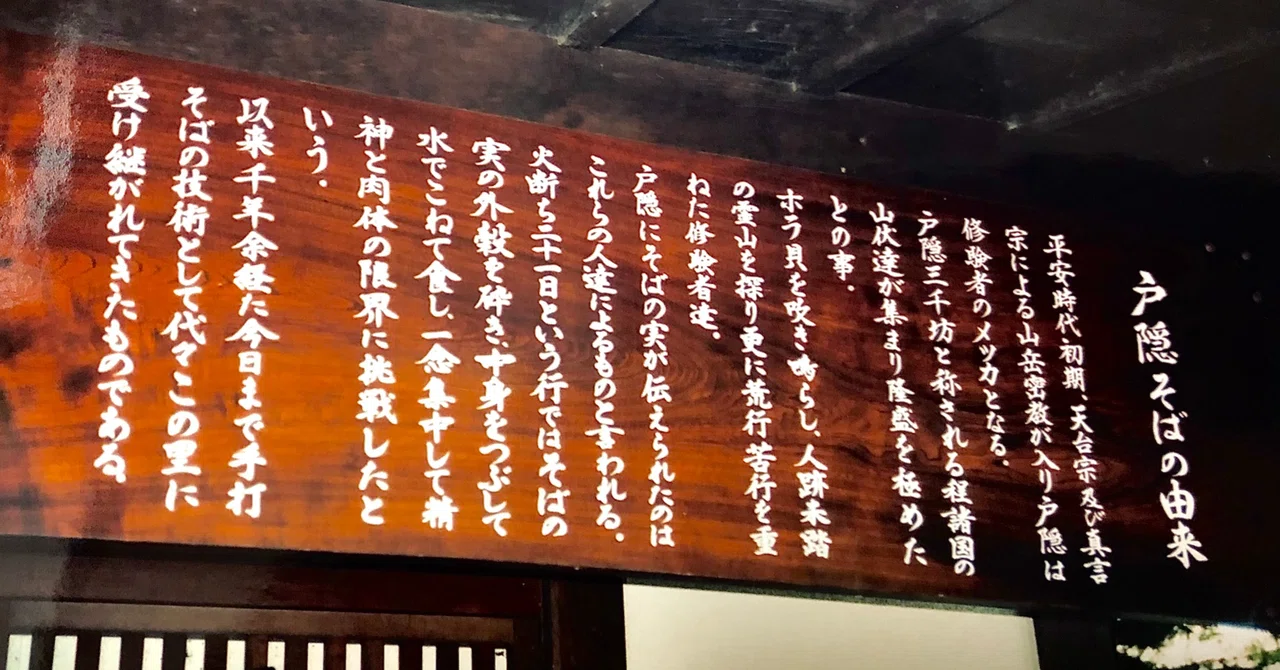 戸隠そばの由来
平安時代初期、天台宗及び真言
宗による山岳密教が入り戸隠は
修験者のメッカとなる.
戸隠三千坊と称される程諸国の
山伏達が集まり隆盛を極めた
との事.
ホラ貝を吹き鳴らし、人跡未踏
の霊山を探り更に荒行苦行を重
ねた修験者達。
戸隠にそばの実が伝えられたのは
これらの人達によるものと言われる.
火断ち二十一日という行ではそばの
実の外殻を砕き、中身をつぶして
水でこねて食し、一念集中して精
神と肉体の限界に挑戦したと
いう.
以来千年余経た今日まで手打
そばの技術として代々この里に
受け継がれてきたものである.